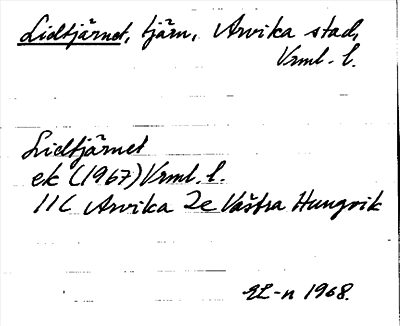 Lidtjärnet, tjärn, Arvika stad,
Vrml. l.
Lidtjärnet
ek (1967) Vrml. l.
11C Arvika 2e Västra Hungvik
EL-n 1968.